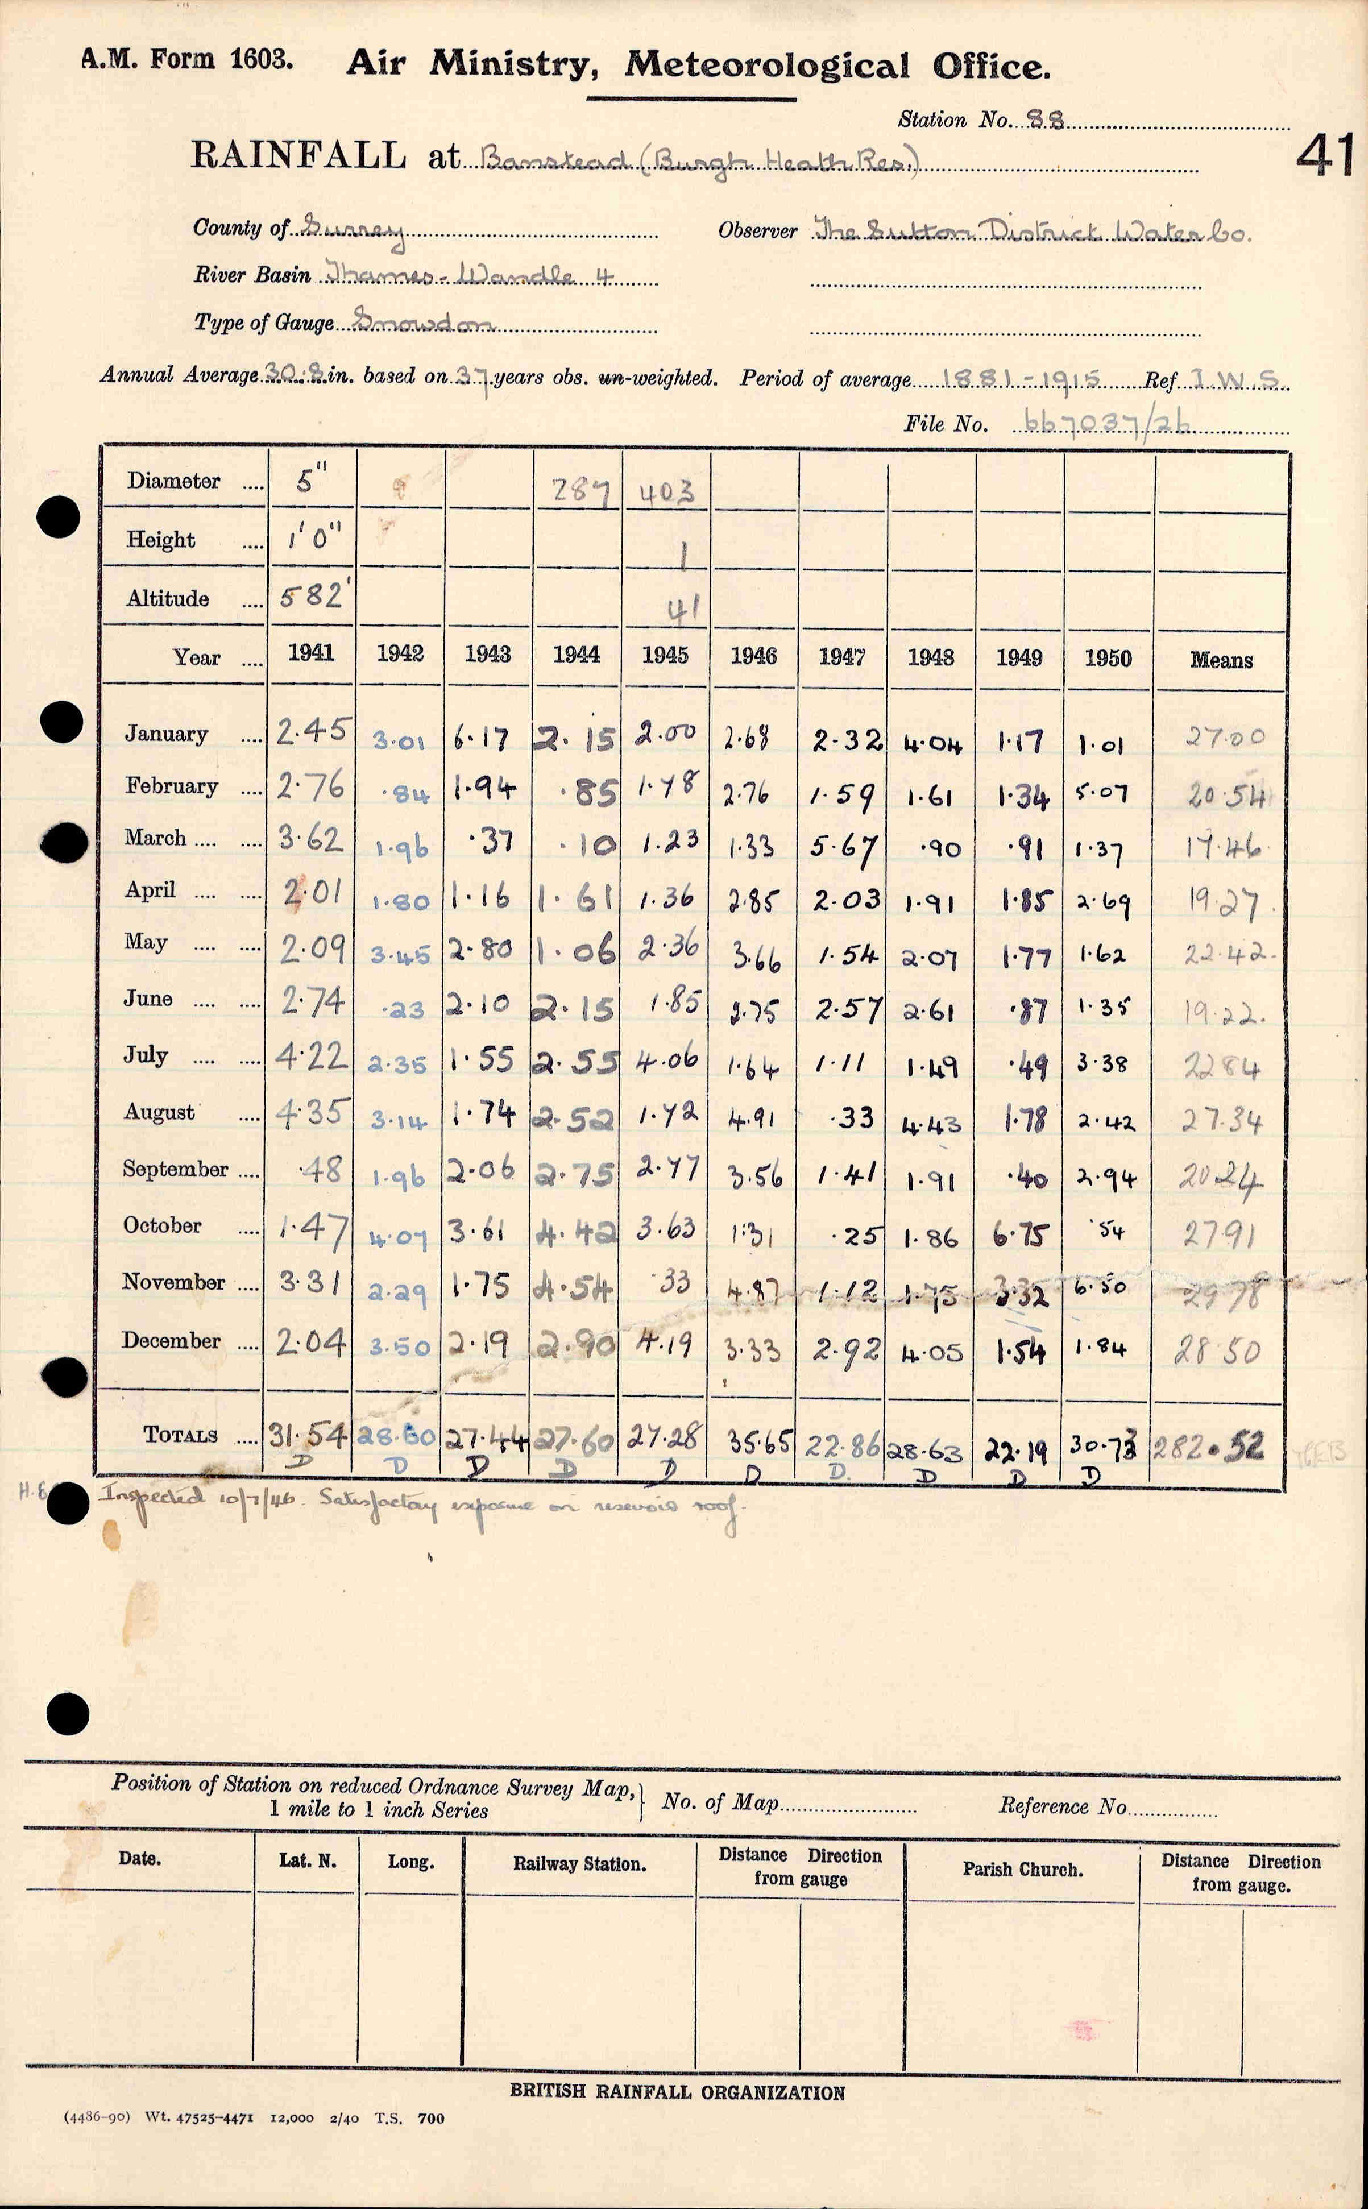 A.M. Form 1603. Air Ministry, Meteorological Office.
Station No. 88
41
RAINFALL at Banstead (Burgh Heath Res.)
County of Surrey Observer The Sutton District Water Co.
River Basin Thames - Wandle 4
Type of Gauge Snowdon
Annual Average 30.8 in. based on 37 years obs. un-weighted. Period of average 1881-1915 Ref I.W.S.
File No. 667037/26
Diameter .... 5" 287 403
Height .... 1'0" 1
Altitude .... 582' 41
Year .... 1941 1942 1943 1944 1945 1946 1947 1948 1949 1950 Means
January .... 2.45 3.01 6.17 2.15 2.00 2.68 2.32 4.04 1.17 1.01 27.00
February .... 2.76 .84 1.94 .85 1.78 2.76 1.59 1.61 1.34 5.07 20.54
March .... .... 3.62 1.96 .37 .10 1.23 1.33 5.67 .90 .91 1.37 17.46
April .... .... 2.01 1.80 1.16 1.61 1.36 2.85 2.03 1.91 1.85 2.69 19.27
May .... .... 2.09 3.45 2.80 1.06 2.36 3.66 1.54 2.07 1.77 1.62 22.42
June .... .... 2.74 .23 2.10 2.15 1.85 2.75 2.57 2.61 .87 1.35 19.22
July .... .... 4.22 2.35 1.55 2.55 4.06 1.64 1.11 1.49 .49 3.38 22 84
August .... 4.35 3.14 1.74 2.52 1.72 4.91 .33 4.43 1.78 2.42 27.34
September .... .48 1.96 2.06 2.75 2.77 3.56 1.41 1.91 .40 2.94 20 24
October .... 1.47 4.07 3.61 4.42 3.63 1.31 .25 1.86 6.75 .54 27 91
November .... 3.31 2.29 1.75 4.54 .33 4.87 1.12 1.75 3.32 6.50 29 78
December .... 2.04 3.50 2.19 2.90 4.19 3.33 2.92 4.05 1.54 1.84 28.50
TOTALS .... 31.54 28.60 27.44 27.60 27.28 35.65 22.86 28.63 22.19 30.73 282.52
D D D D D D D. D D D
Inspected 10/7/46. Satisfactory exposure on reservoir roof.
Position of Station on reduced Ordnance Survey Map, } No. of Map Reference No
1 mile to 1 inch Series
Date. Lat. N. Long. Railway Station. Distance Direction from gauge Parish Church. Distance Direction from gauge.
BRITISH RAINFALL ORGANIZATION
(4486-90) Wt. 47525-4471 12,000 2/40 T.S. 700